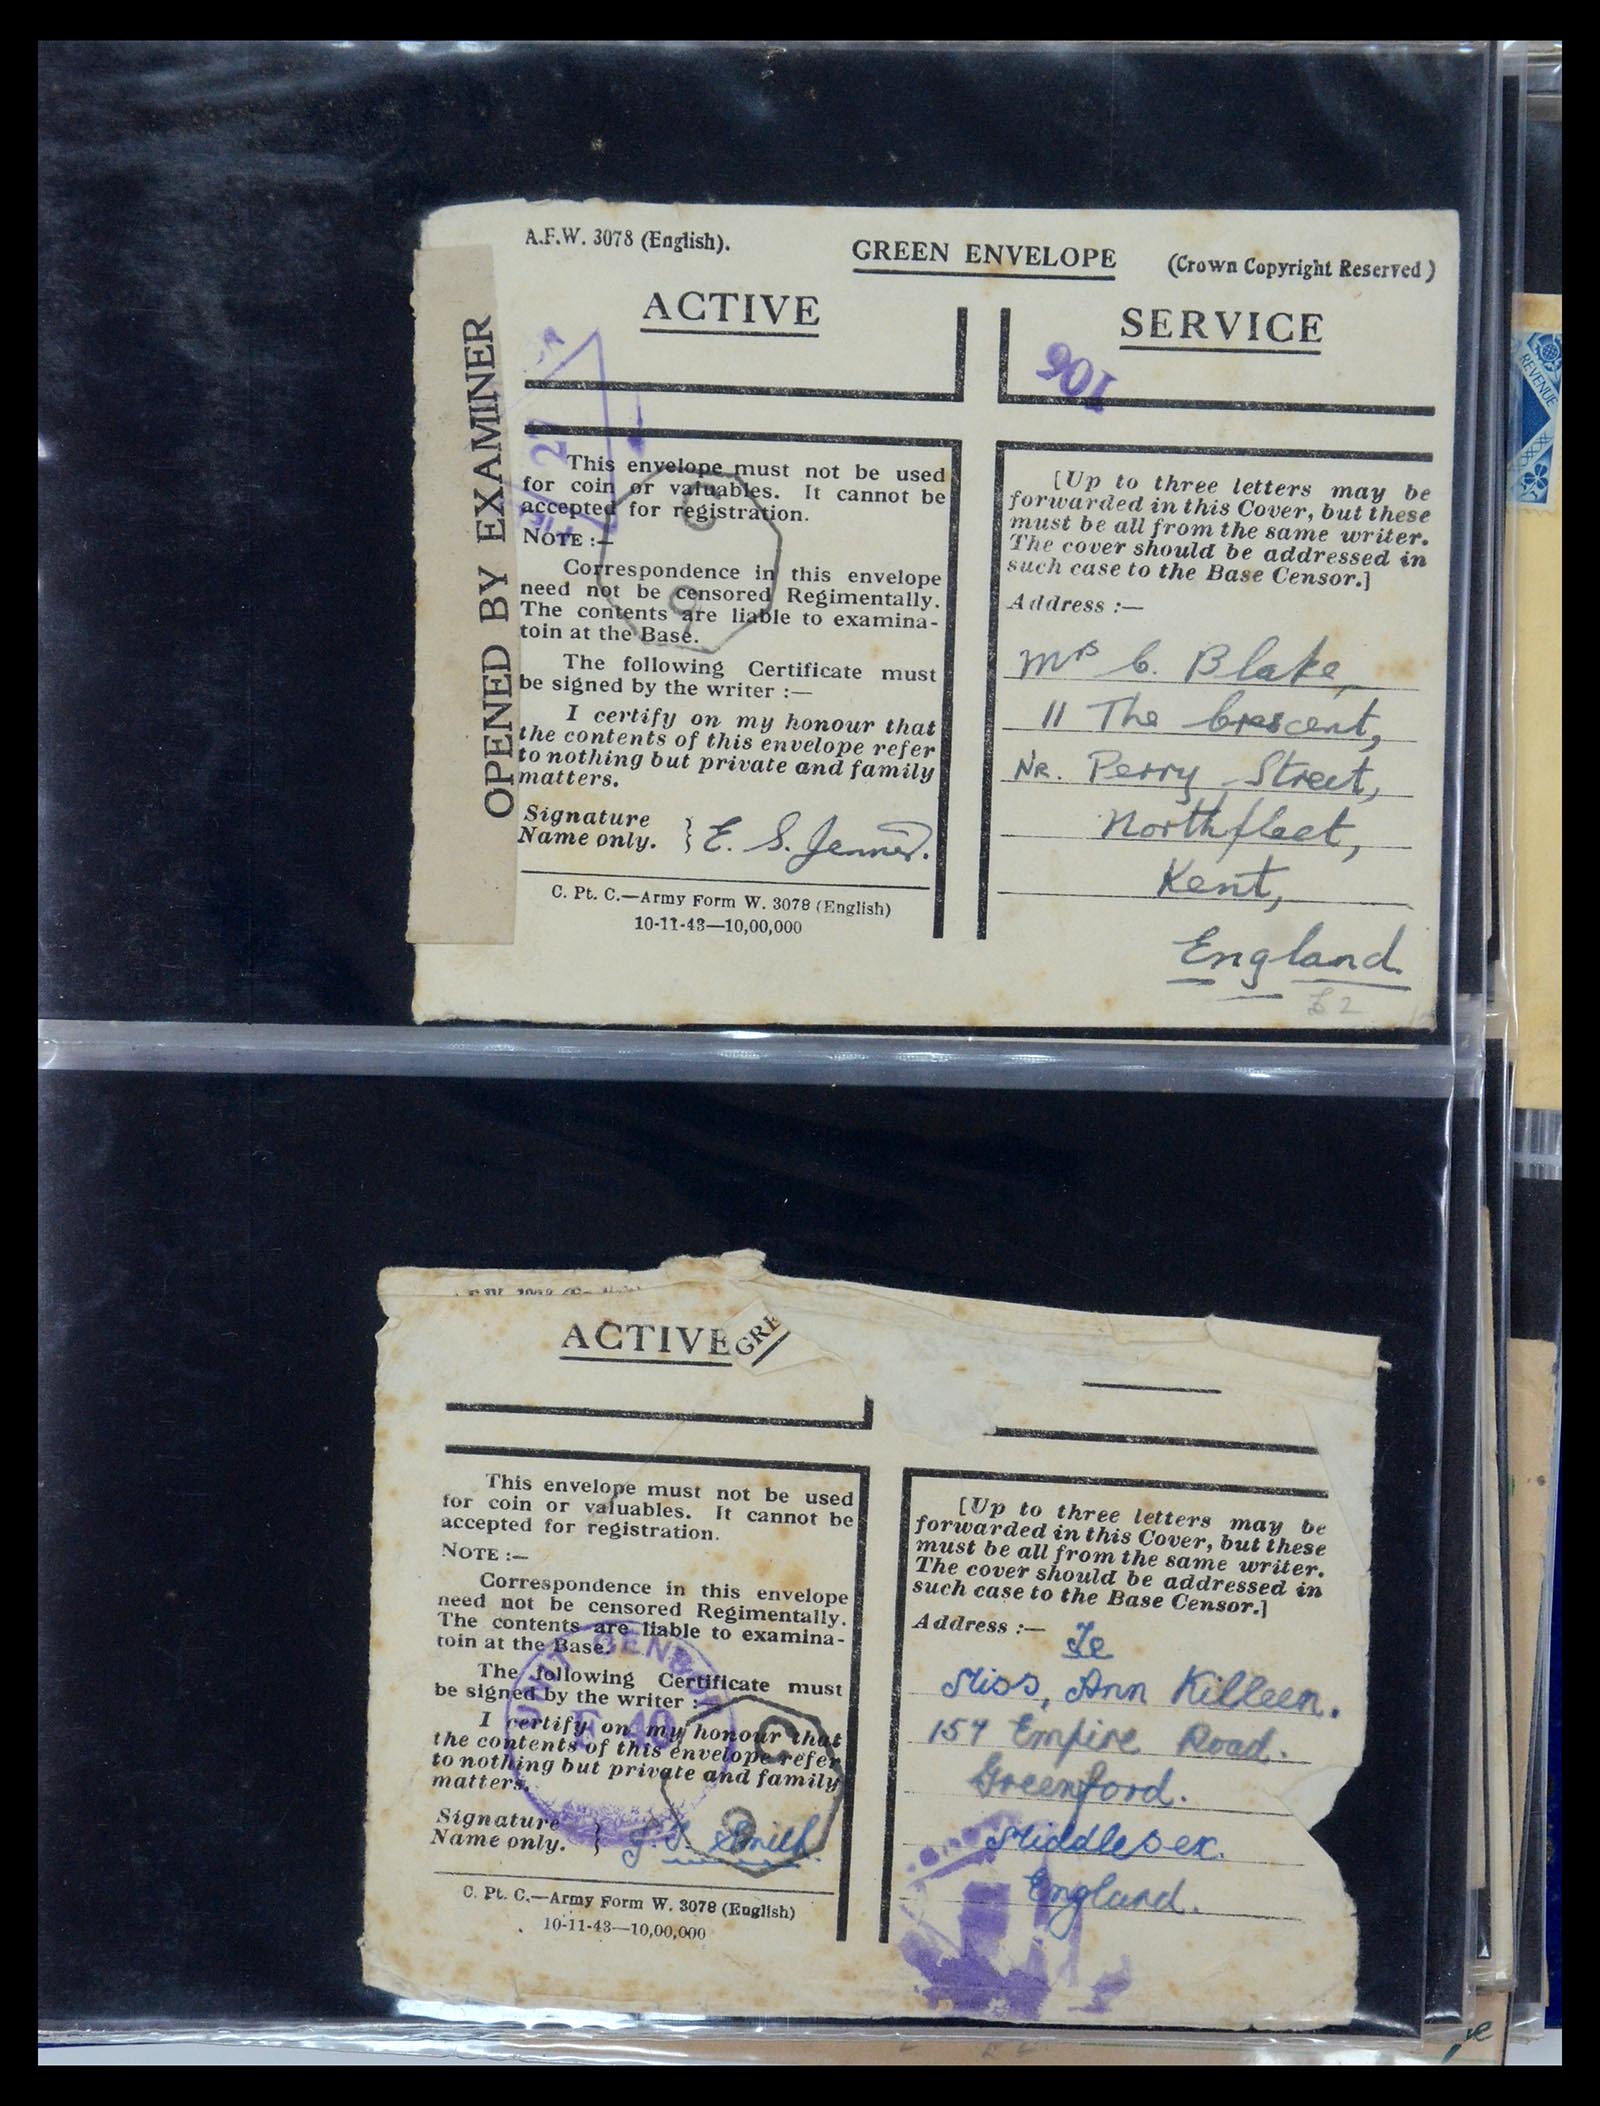 A.F.W. 3078 (English).
GREEN ENVELOPE
(Crown Copyright Reserved)
ACTIVE
SERVICE
106
OPENED BY EXAMINER
27
This envelope must not be used
for coin or valuables. It cannot be
accepted for registration.
NOTE :—
Correspondence in this envelope
need not be censored Regimentally.
The contents are liable to examina-
toin at the Base.
The following Certificate must
be signed by the writer :—
I certify on my honour that
the contents of this envelope refer
to nothing but private and family
matters.
Signature
Name only. } E. S. Jenner.
C. Pt. C.—Army Form W. 3078 (English)
10-11-43—10,00,000
[Up to three letters may be
forwarded in this Cover, but these
must be all from the same writer.
The cover should be addressed in
such case to the Base Censor.]
Address :—
Mrs C. Blake,
11 The Crescent,
Nr. Perry Street,
Northfleet,
Kent,
England.
£2
REVENUE
ACTIVE
GRE
This envelope must not be used
for coin or valuables. It cannot be
accepted for registration.
NOTE :—
Correspondence in this envelope
need not be censored Regimentally.
The contents are liable to examina-
toin at the Base.
The following Certificate must
be signed by the writer :—
I certify on my honour that
the contents of this envelope refer
to nothing but private and family
matters.
UNIT CENSOR
F 40
Signature
Name only. } J. T. Smith.
C. Pt. C.—Army Form W. 3078 (English)
10-11-43—10,00,000
[Up to three letters may be
forwarded in this Cover, but these
must be all from the same writer.
The cover should be addressed in
such case to the Base Censor.]
Address :— To
Miss, Ann Killeen.
157 Empire Road.
Greenford.
Middlesex.
England.